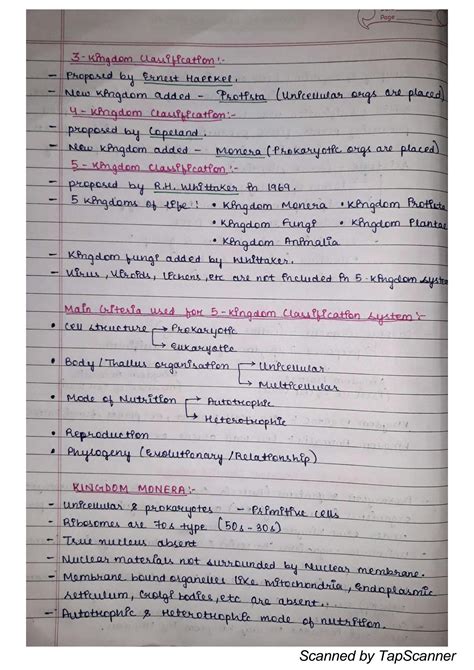 Page
3-Kingdom Classification:-
- Proposed by Ernest Haeckel.
- New Kingdom added - Protista (Unicellular orgs are placed)
4-Kingdom Classification:-
- proposed by Copeland.
- New kingdom added - Monera (Prokaryotic orgs are placed)
5-Kingdom Classification:-
- proposed by R.H. Whittaker in 1969.
- 5 Kingdoms of life: • Kingdom Monera • Kingdom Protista
• Kingdom Fungi • Kingdom Plantae
• Kingdom Animalia
- Kingdom fungi added by Whittaker.
- Virus, Viroids, Lichens, etc are not included in 5-kingdom system
Main Criteria used for 5-Kingdom Classification System:-
• Cell structure → Prokaryotic
→ Eukaryotic
• Body / Thallus organisation → Unicellular
→ Multicellular
• Mode of Nutrition → Autotrophic
→ Heterotrophic
• Reproduction
• Phylogeny (Evolutionary / Relationship)
KINGDOM MONERA:-
- Unicellular & prokaryotes - Primitive cells
- Ribosomes are 70s type (50s-30s)
- True nucleus absent
- Nuclear materials not surrounded by Nuclear membrane.
- Membrane bound organelles like mitochondria, Endoplasmic
reticulum, Golgi bodies, etc are absent.
- Autotrophic & Heterotrophic mode of nutrition.
Scanned by TapScanner